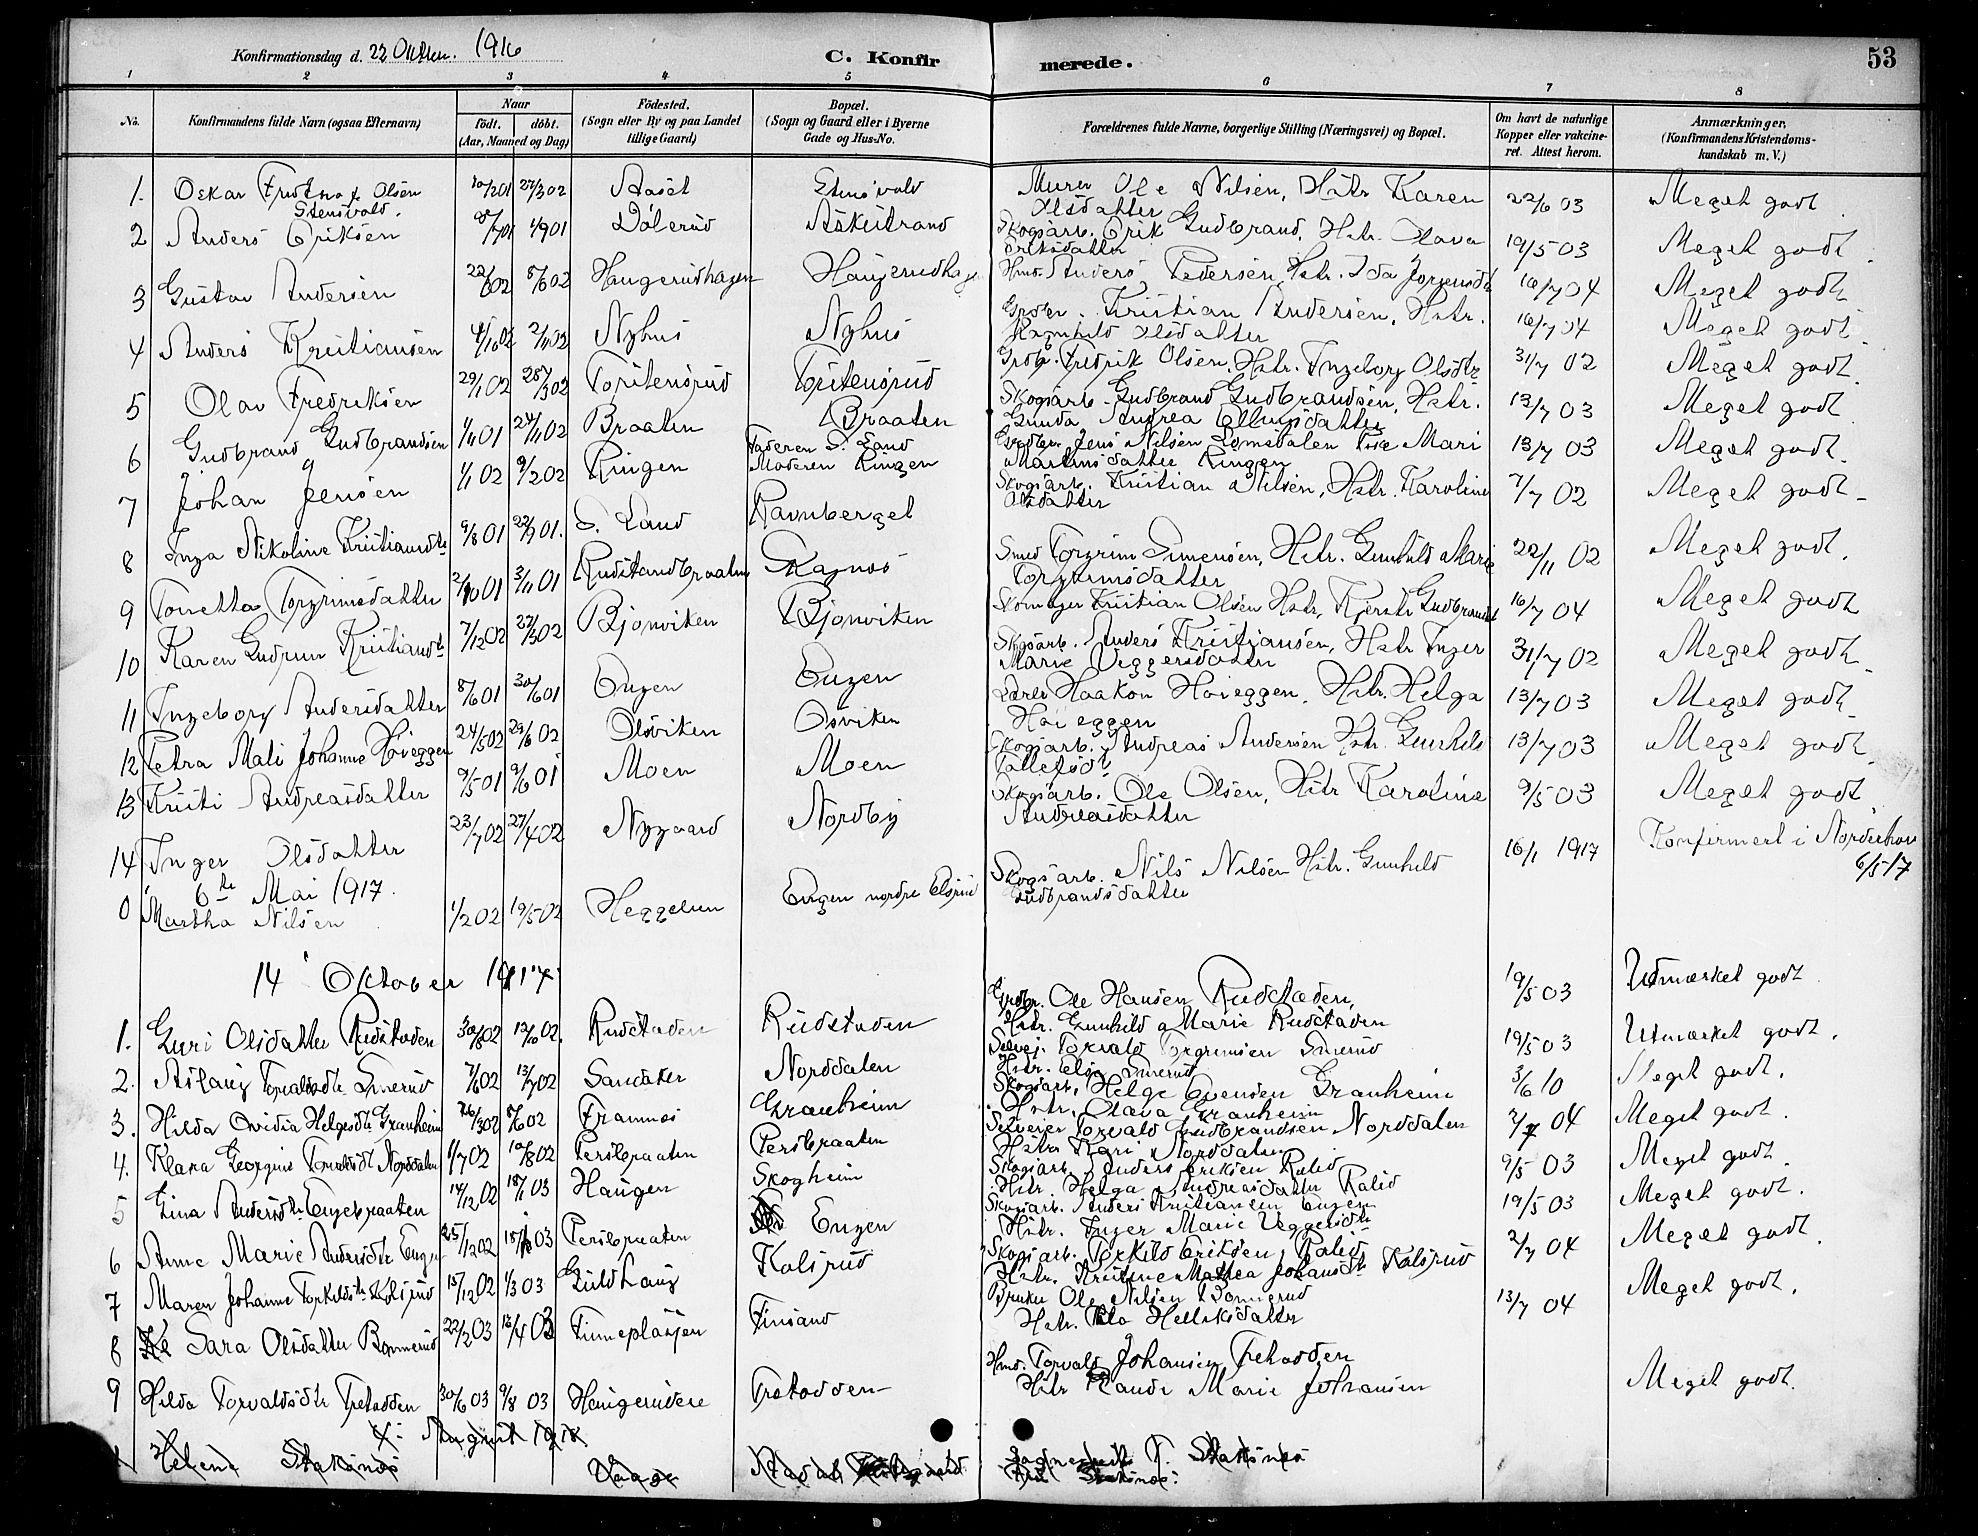 Konfirmationsdag d. 22 Oktber. 1916
C. Konfirmerede.
53
1 2 3 4 5 6 7 8
No. Konfirmandens fulde Navn (ogsaa Efternavn) Naar födt. döbt. (Aar, Maaned og Dag) Födested. (Sogn eller By og paa Landet tillige Gaard) Bopæl. (Sogn og Gaard eller i Byerne Gade og Hus-No. Forældrenes fulde Navne, borgerlige Stilling (Næringsvei) og Bopæl. Om havt de naturlige Kopper eller vakcineret. Attest herom. Anmærkninger, (Konfirmandens Kristendomskundskab m. V.)
1. Oskar Olsen Stensvold. 27/3 02 Aaset Stensvold Murer Ole Nilsen, Hstr Karen Olsdatter 22/6 03 Meget godt.
2 Anders Eriksen Dölerud Askeistrand Skogsarb. Erik Gudbrand. Hstr. Olava Eriksdatter 19/5 03 Meget godt.
3 Gustav Andersen Haugerudhagen Haugerudhag Hmd. Anders Pedersen, Hstr. Ida Jörgensdt 16/7 04 Meget godt
4 Anders Kristiansen 4/10 02 2/11 02 Nyhus Nyhus Kristian Andersen, Hstr. Ragnhild Olsdatter 16/7 04 Meget godt
5 Olav Fredriksen 29/1 02 Grdbr. Fredrik Olsen, Hstr. Ingeborg Olsdtr 31/7 02 Meget godt.
6 Gudbrand Gudbrandsen 1/11 01 Braaten Braaten Skogsarb. Gudbrand Gudbrandsen, Hstr. Gunda Andrea Ellingsdatter 13/7 03 Meget godt
7 Johan Jensen 1/1 02 9/2 02 Ringen Faderen S. Land Moderen Ringen Jens Nilsen Mari Martinsdatter Ringen 13/7 03 Meget godt.
8 Inga Nikoline Kristiansdtr 9/8 01 22/9 01. S. Land Ravnberget Skogsarb. Kristian Nilsen, Hstr. Karoline Olsdatter 7/7 02 Meget godt
9 Torgrimsdatter 3/11 01 Rudstandbraaten Skagnæs Smed Torgrim Simensen, Hstr. Gunhild Marie Torgrimsdatter 22/11 02 Meget godt.
10 Karen Gudrun Kristiansdtr 7/12 02 27/3 02 Bjonviken Bjonviken Skomager Kristian Olsen Hstr. Kjersti 16/7 04 Meget godt
11 Ingeborg Andersdatter 8/6 01 30/6 01 Engen Engen Skogsarb. Anders Kristiansen, Hstr Inger Marie Veggersdatter 31/7 02 Meget godt
12 Petra Mali Johanne Höieggen 24/5 02 29/6 02 Olsviken Osviken Lærer Haakon Höieggen. Hstr. Helga Höieggen 13/7 03 Meget godt
13 Kristi Andreasdatter 9/5 01 9/6 01 Moen Moen Skogsarb. Andreas Andersen Hstr. Gunhild 13/7 03 Meget godt
14 Inger Olsdatter 23/7 02 27/4 02 Nygaard Nordby Skogsarb. Ole Olsen, Hstr Karoline Andreasdatter 9/5 03 Meget godt
6te Mai 1917.
0 Martha Nilsen 1/2 02 19/5 02 Heggelien Engen nordre Skogsarb. Nils Nilsen Hstr. Gunhild Gudbrandsdatter 16/1 1917 Konfirmert i Norderhov 6/5 17
14 Oktober 1917.
1. Guri Olsdatter Rudstaden 30/8 02 12/10 02. Rudstaden Rudstaden Grdbr. Ole Hansen Rudstaden, Hstr. Gunhild Marie Rudstaden 19/5 03 Utmærket godt.
2. Aslaug Torvaldsdtr Smerud 7/6 02 13/7 02 Sandaker Norddalen Selvej. Torvald Torgrimsen Smerud Hstr. Elise Smerud 19/5 03 Utmærket godt.
3. Hilda Ovidia Helgesdtr Granheim 8/6 02 Framnes Granheim Skogsarb. Helge Evensen Granheim Hstr. Olava Granheim 3/6 10 Meget godt.
4. Klara Georgine Torvaldsdt Norddalen 1/7 02 10/8 02 Persbraaten Persbraaten Selveier Torvald Gudbrandsen Norddalen Hstr Kari Norddalen 2/7 04 Meget godt.
5 Gina Andersdtr Engebraaten 14/12 02 18/1 03 Haugen Skogheim Skogsarb. Anders Eriksen Hstr. Helga Andreasdatter 9/5 03 Meget godt.
6 Anne Marie Andersdtr Engen 25/12 02 Persbraaten Engen Skogsarb. Anders Kristiansen Engen Hstr. Inger Marie Veggersdtr 19/5 03 Meget godt.
7 Maren Johanne Torkildsdtr Kolsrud 15/12 02 1/3 03 Guldhaug Kolsrud Skogsarb. Torkild Eriksen Hstr. Kristine Mathea Johansdtr Kolsrud 2/7 04 Meget godt.
8 Sara Olsdatter Bommerud 22/2 03 13/4 03 Finneplassen Finsand Bruker Ole Nilsen Bommerud Hstr. Helleksdatter 13/7 04 Meget godt.
9 Hilda Torvaldsdtr Tretodden 30/6 03 9/8 03 Haugerudeie Tretodden Hmd. Torvald Johansen Tretodden Hstr Randi Marie Johansen Meget godt.
4: August 1918
Helene Staksnæs Staksnæs Staksnæs.